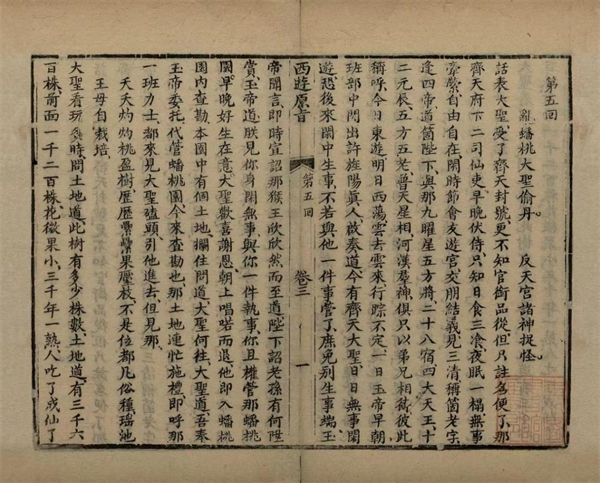 第五回
亂蟠桃大聖偷丹　反天宮諸神捉怪
話表大聖受了齊天封號更不知官銜品從但只註名便了那
齊天府下二司仙吏早晚伏侍只知日食三飡夜眠一榻無事
牽縈自由自在閑時節會友遊宮交朋結義見三清稱箇老字
逢四帝道箇陛下與那九曜星五方將二十八宿四大天王十
二元辰五方五老普天星相河漢群神俱只以弟兄相待彼此
稱呼今日東遊明日西蕩雲去雲來行踪不定一日玉帝早朝
班部中閃出許旌陽真人啟奏道今有齊天大聖日日無事閑
遊恐後來閑中生事不若與他一件事管了庶免別生事端玉
西遊原旨
第五回
卷三
一
帝聞言即時宣詔那猴王欣欣然而至道陛下詔老孫有何陞
賞玉帝道朕見你身閑無事與你一件執事你且權管那蟠桃
園早晚好生在意大聖歡喜謝恩朝上唱喏而退他即入蟠桃
園內查勘本園中有個土地攔住問道大聖何往大聖道吾奉
玉帝委托代管蟠桃園今來查勘也那土地連忙施禮即呼那
一班力士都來見大聖磕頭引他進去但見那
夭夭灼灼桃盈樹歷歷纍纍果壓枝不是位都凡俗種瑤池
王母自栽培
大聖看玩多時問土地道此樹有多少株數土地道有三千六
百株前面一千二百株花微果小三千年一熟人吃了成仙了